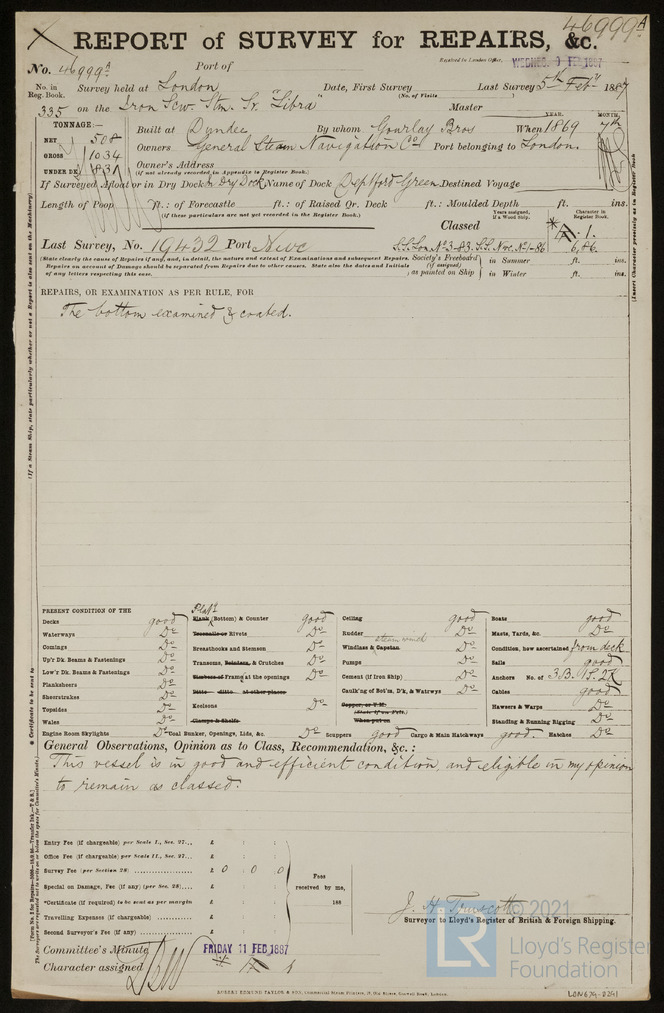 46999A
REPORT of SURVEY for REPAIRS, &c.
No. 46999A Port of Received in London Office, WEDNES. 9 FEB 1887
No. in Reg. Book. Survey held at London Date, First Survey Last Survey 5th Feby 1887
(No. of Visits )
335 on the Iron Scw. Stm. Sr. "Libra" Master
TONNAGE:— YEAR. MONTH.
NET 508 Built at Dundee By whom Gourlay Bros When 1869 7th
GROSS 1034 Owners General Steam Navigation Co. Port belonging to London.
UNDER DK 831 Owner's Address
(if not already recorded in Appendix to Register Book.)
If Surveyed Afloat or in Dry Dock In Dry Dock Name of Dock Deptford Green Destined Voyage
Length of Poop ft.: of Forecastle ft.: of Raised Qr. Deck ft.: Moulded Depth ft. ins.
(If these particulars are not yet recorded in the Register Book.)
Years assigned, if a Wood Ship. Character in Register Book.
Classed A. 1.
Last Survey, No. 19432 Port Newc S.S. Lon. No 3-83. S.S. Nwc. No 1-86 6,86.
(State clearly the cause of Repairs if any, and, in detail, the nature and extent of Examinations and subsequent Repairs.
Repairs on account of Damage should be separated from Repairs due to other causes. State also the dates and initials
of any letters respecting this case.
Society's Freeboard (if assigned) as painted on Ship in Summer ft. ins.
in Winter ft. ins.
REPAIRS, OR EXAMINATION AS PER RULE, FOR
The bottom examined & coated.
PRESENT CONDITION OF THE
Decks good
Waterways Do
Comings Do
Up'r Dk. Beams & Fastenings Do
Low'r Dk. Beams & Fastenings Do
Planksheers Do
Sheerstrakes Do
Topsides Do
Wales Do
Engine Room Skylights Do
Plank (Bottom) & Counter good
Treenails or Rivets Do
Breasthooks and Stemson Do
Transoms, Pointers, & Crutches Do
Timbers or Frames at the openings Do
Ditto ditto at other places
Keelsons Do
Clamps & Shelfs
Coal Bunker, Openings, Lids, &c. Do
Ceiling good
Rudder Do
steam winch
Windlass & Capstan Do
Pumps Do
Cement (if from Ship) Do
Caulk'ng of Bot'm, D'k, & Watrwys Do
Copper, or Y.M.
(State if on Felt.)
When put on
Scuppers good Cargo & Main Hatchways good Hatches Do
Boats good
Masts, Yards, &c. Do
Condition, how ascertained from deck
Sails good
Anchors No. of 3 B. 1 S. 2 K
Cables good
Hawsers & Warps Do
Standing & Running Rigging Do
General Observations, Opinion as to Class, Recommendation, &c. :
This vessel is in good and efficient condition, and eligible in my opinion
to remain as classed.
Entry Fee (if chargeable) per Scale I., Sec. 27... £ : :
Office Fee (if chargeable) per Scale II., Sec. 27... £ : :
Survey Fee (per Section 28) £ 0 0 0
Special on Damage, Fee (if any) (per Sec. 28).... £ : :
*Certificate (if required) to be sent as per margin £ : :
Travelling Expenses (if chargeable) £ : :
Second Surveyor's Fee (if any) £ : :
Fees received by me, 188
J. H. Truscott
Surveyor to Lloyd's Register of British & Foreign Shipping.
Committee's Minute FRIDAY 11 FEB 1887
Character assigned
© 2021
LR
Lloyd's Register
Foundation
LON679-0291